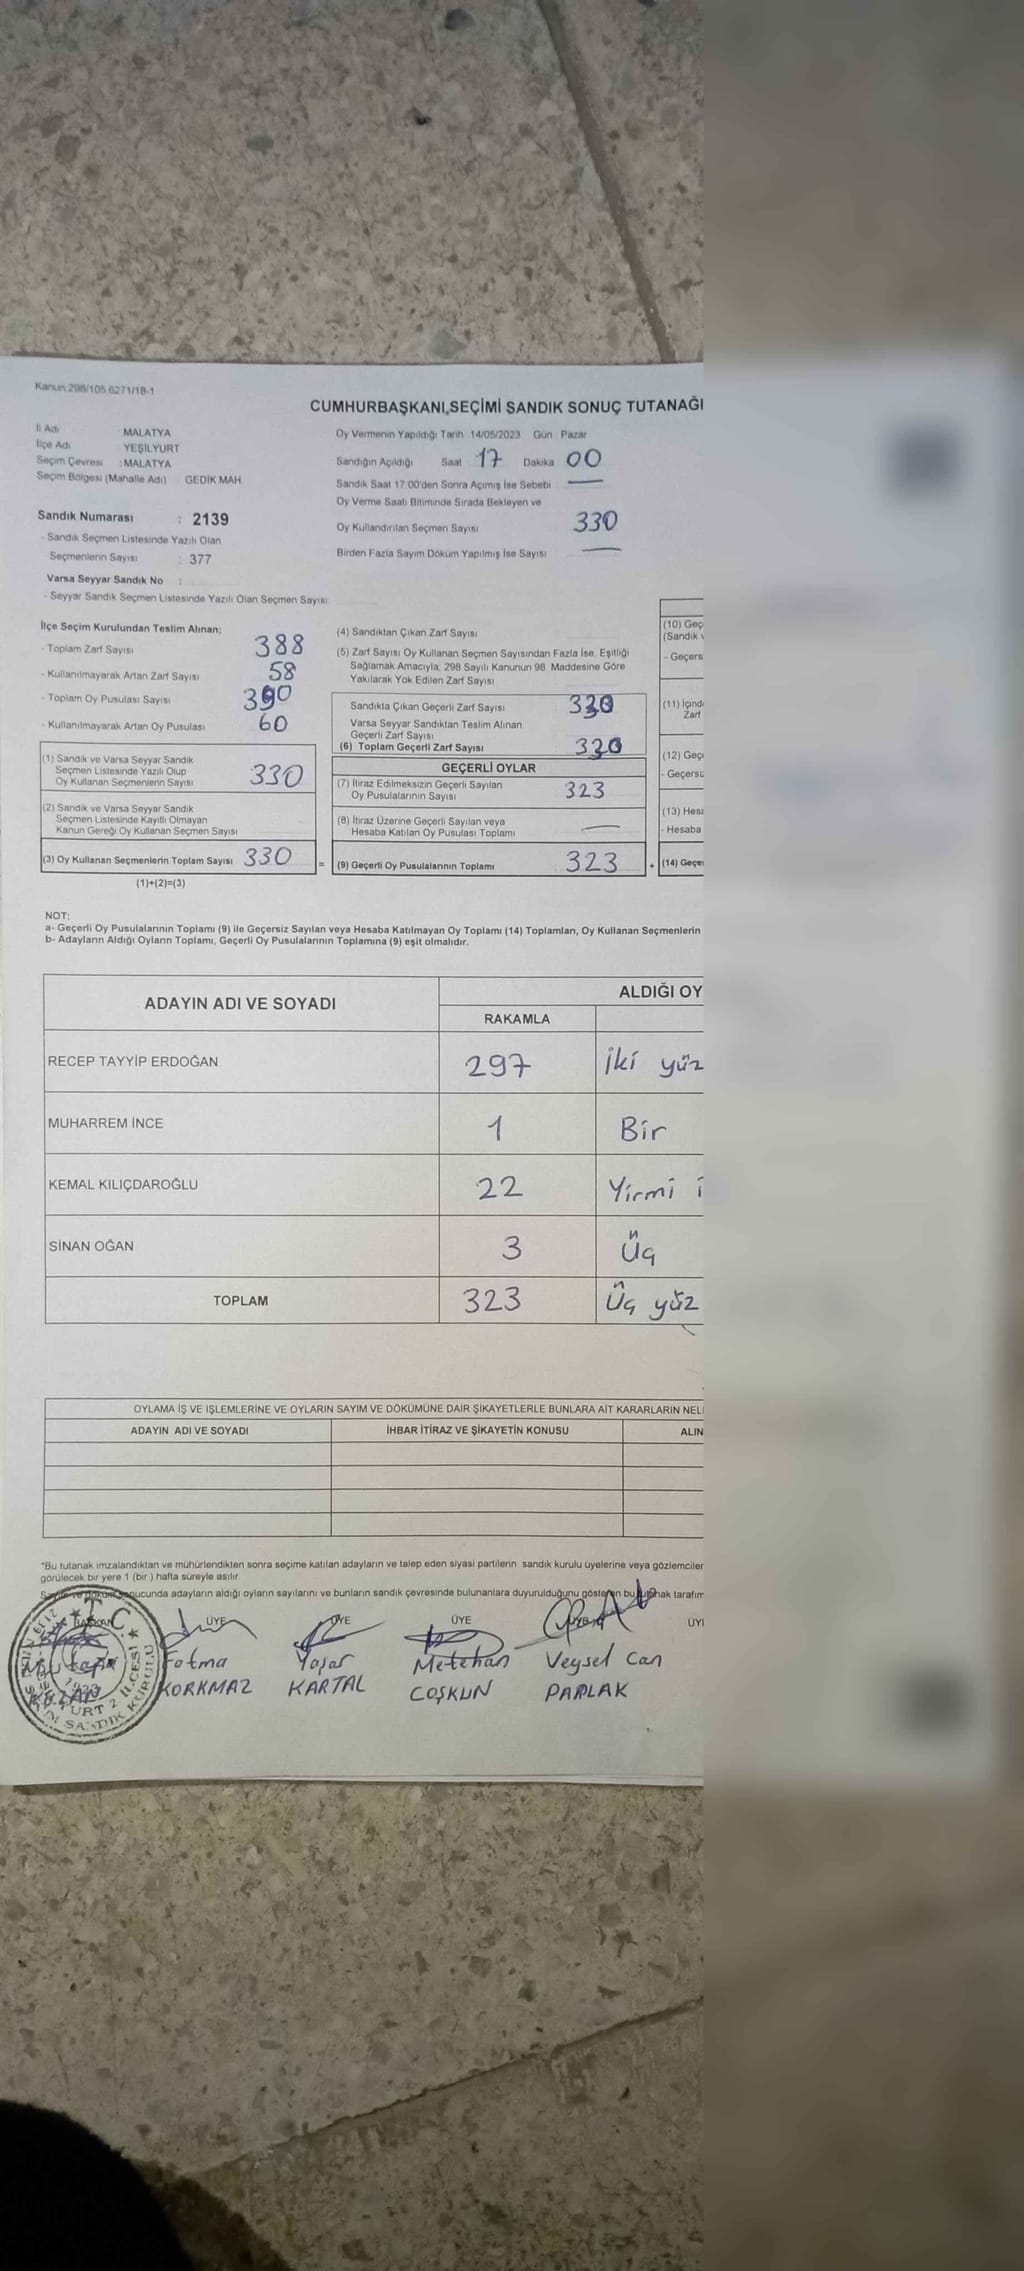 Kanun:298/105,6271/18-1
CUMHURBAŞKANI SEÇİMİ SANDIK SONUÇ TUTANAĞI
İl Adı MALATYA
İlçe Adı YEŞİLYURT
Seçim Çevresi : MALATYA
Seçim Bölgesi (Mahalle Adı) GEDİK MAH
Oy Vermenin Yapıldığı Tarih 14/05/2023 Gün : Pazar
Sandığın Açıldığı Saat 17 Dakika 00
Sandık Saat 17:00'den Sonra Açımış İse Sebebi —
Oy Verme Saati Bitiminde Sırada Bekleyen ve
Oy Kullandırılan Seçmen Sayısı 330
Birden Fazla Sayım Döküm Yapılmış İse Sayısı —
Sandık Numarası : 2139
- Sandık Seçmen Listesinde Yazılı Olan
Seçmenlerin Sayısı : 377
Varsa Seyyar Sandık No :
- Seyyar Sandık Seçmen Listesinde Yazılı Olan Seçmen Sayısı
İlçe Seçim Kurulundan Teslim Alınan;
- Toplam Zarf Sayısı 388
- Kullanılmayarak Artan Zarf Sayısı 58
- Toplam Oy Pusulası Sayısı 390
- Kullanılmayarak Artan Oy Pusulası 60
(1) Sandık ve Varsa Seyyar Sandık
Seçmen Listesinde Yazılı Olup
Oy Kullanan Seçmenlerin Sayısı 330
(2) Sandık ve Varsa Seyyar Sandık
Seçmen Listesinde Kayıtlı Olmayan
Kanun Gereği Oy Kullanan Seçmen Sayısı
(3) Oy Kullanan Seçmenlerin Toplam Sayısı 330 =
(1)+(2)=(3)
(4) Sandıktan Çıkan Zarf Sayısı
(5) Zarf Sayısı Oy Kullanan Seçmen Sayısından Fazla İse, Eşitliği
Sağlamak Amacıyla, 298 Sayılı Kanunun 98. Maddesine Göre
Yakılarak Yok Edilen Zarf Sayısı
Sandıkta Çıkan Geçerli Zarf Sayısı 330
Varsa Seyyar Sandıktan Teslim Alınan
Geçerli Zarf Sayısı
(6) Toplam Geçerli Zarf Sayısı 330
GEÇERLİ OYLAR
(7) İtiraz Edilmeksizin Geçerli Sayılan
Oy Pusulalarının Sayısı 323
(8) İtiraz Üzerine Geçerli Sayılan veya
Hesaba Katılan Oy Pusulası Toplamı —
(9) Geçerli Oy Pusulalarının Toplamı 323 +
(10) Geç
(Sandık
- Geçers
(11) İçind
Zarf
(12) Geç
- Geçersc
(13) Hesa
- Hesaba
(14) Geçe
NOT:
a- Geçerli Oy Pusulalarının Toplamı (9) ile Geçersiz Sayılan veya Hesaba Katılmayan Oy Toplamı (14) Toplamları, Oy Kullanan Seçmenlerin
b- Adayların Aldığı Oyların Toplamı, Geçerli Oy Pusulalarının Toplamına (9) eşit olmalıdır.
ADAYIN ADI VE SOYADI ALDIĞI OY
RAKAMLA
RECEP TAYYİP ERDOĞAN 297 İki yüz
MUHARREM İNCE 1 Bir
KEMAL KILIÇDAROĞLU 22 Yirmi i
SİNAN OĞAN 3 Üç
TOPLAM 323 Üç yüz
OYLAMA İŞ VE İŞLEMLERİNE VE OYLARIN SAYIM VE DÖKÜMÜNE DAİR ŞİKAYETLERLE BUNLARA AİT KARARLARIN NEL
ADAYIN ADI VE SOYADI İHBAR İTİRAZ VE ŞİKAYETİN KONUSU ALIN
*Bu tutanak imzalandıktan ve mühürlendikten sonra seçime katılan adayların ve talep eden siyasi partilerin sandık kurulu üyelerine veya gözlemciler
görülecek bir yere 1 (bir ) hafta süreyle asılır.
sonucunda adayların aldığı oyların sayılarını ve bunların sandık çevresinde bulunanlara duyurulduğunu gösteren bu tutanak tarafım
BAŞKAN ÜYE ÜYE ÜYE ÜYE ÜYE
Fatma Yaşar Metehan Veysel Can
KORKMAZ KARTAL COŞKUN PARLAK
T.C.
SANDIK KURULU